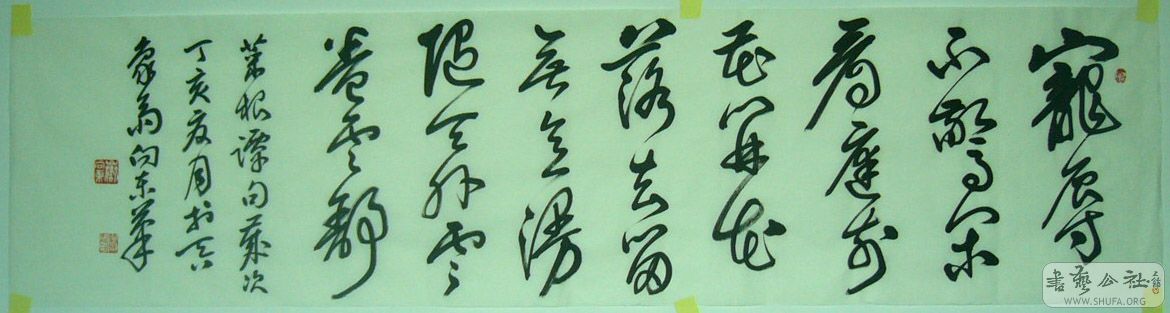 寵辱
不驚閑
看庭前
花開花
落去留
無意漫
隨天外雲
卷雲舒
菜根譚句歲次
丁亥夏月於
翁向東
書藝公社
WWW.SHUFA.ORG